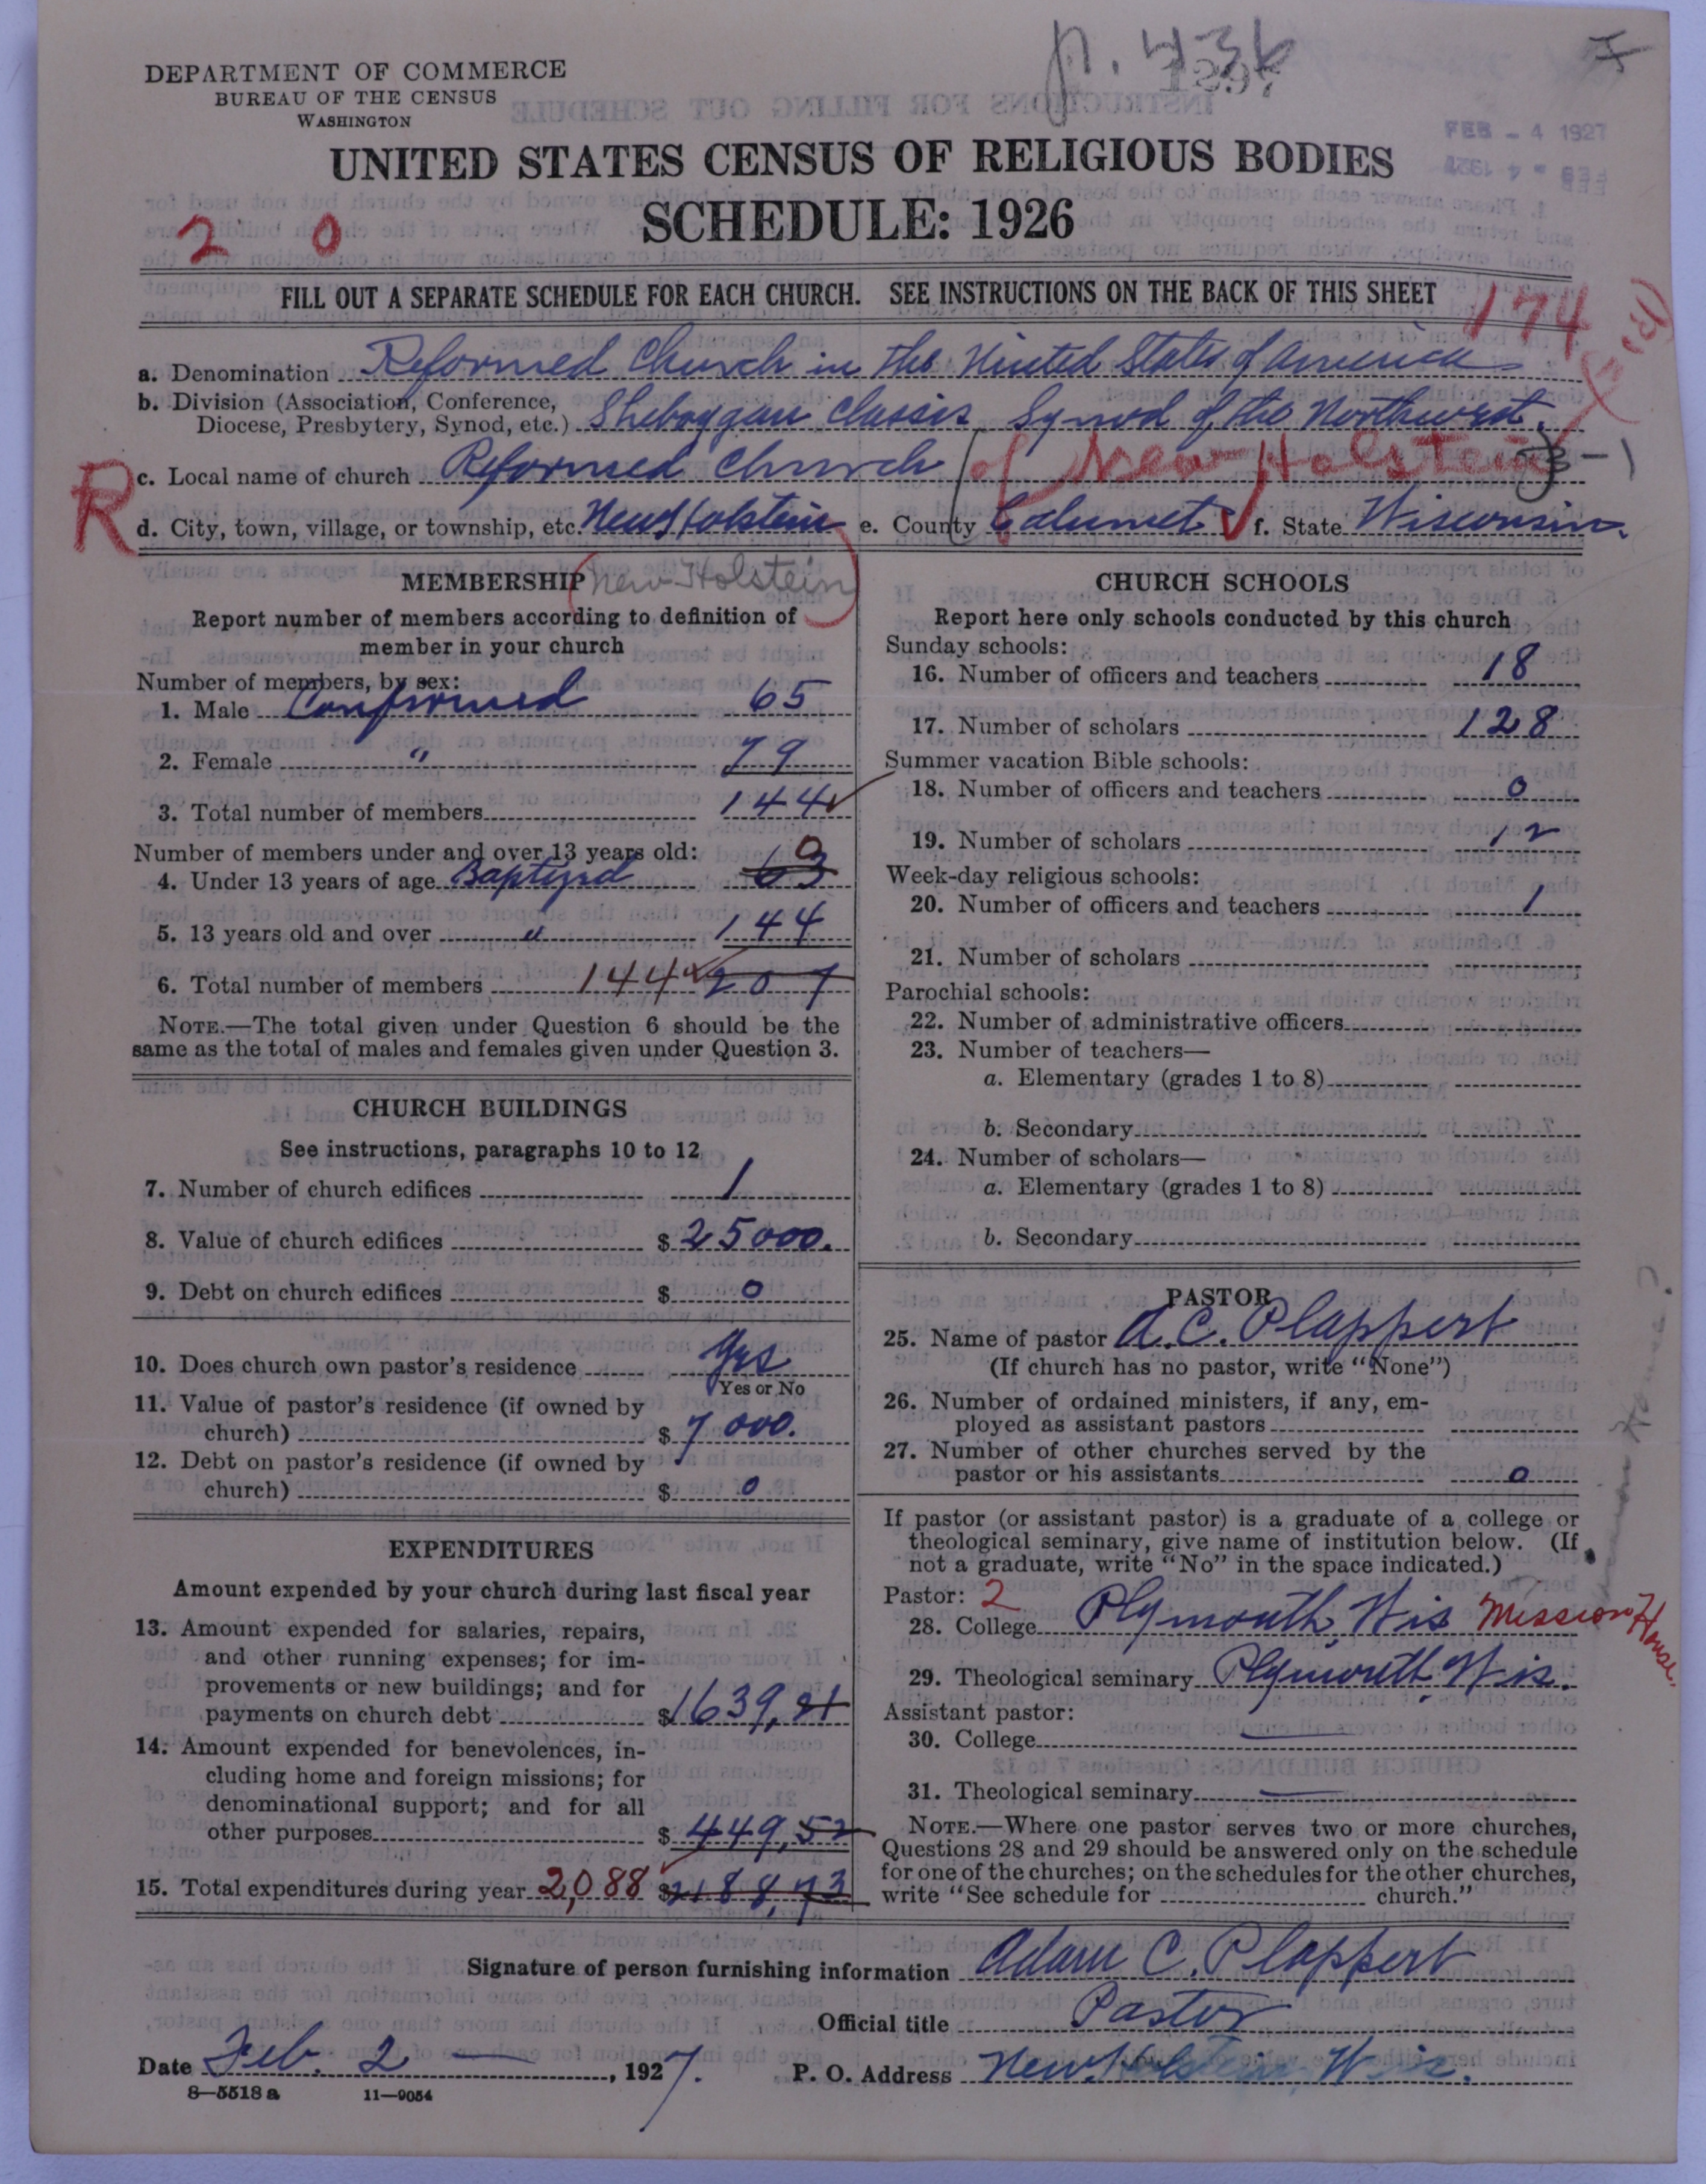 p. 436
1897
DEPARTMENT OF COMMERCE
BUREAU OF THE CENSUS
WASHINGTON
FEB - 4 1927
UNITED STATES CENSUS OF RELIGIOUS BODIES
SCHEDULE: 1926
2 0
FILL OUT A SEPARATE SCHEDULE FOR EACH CHURCH. SEE INSTRUCTIONS ON THE BACK OF THIS SHEET
174
a. Denomination Reformed Church in the United States of America
b. Division (Association, Conference,
Diocese, Presbytery, Synod, etc.) Sheboygan Classis Synod of the Northwest.
c. Local name of church Reformed Church of New Holstein 3-1
R
d. City, town, village, or township, etc. New Holstein e. County Calumet f. State Wisconsin.
MEMBERSHIP (New Holstein)
Report number of members according to definition of
member in your church
Number of members, by sex:
1. Male Confirmed 65
2. Female " 79
3. Total number of members 144
Number of members under and over 13 years old:
4. Under 13 years of age Baptized 63 0
5. 13 years old and over " 144
6. Total number of members 144 207
NOTE.—The total given under Question 6 should be the
same as the total of males and females given under Question 3.
CHURCH BUILDINGS
See instructions, paragraphs 10 to 12
7. Number of church edifices 1
8. Value of church edifices $ 25000.
9. Debt on church edifices $ 0
10. Does church own pastor's residence Yes
Yes or No
11. Value of pastor's residence (if owned by
church) $ 7000.
12. Debt on pastor's residence (if owned by
church) $ 0
EXPENDITURES
Amount expended by your church during last fiscal year
13. Amount expended for salaries, repairs,
and other running expenses; for im-
provements or new buildings; and for
payments on church debt $ 1639,21
14. Amount expended for benevolences, in-
cluding home and foreign missions; for
denominational support; and for all
other purposes $ 449,52
15. Total expenditures during year 2,088 $ 2188,73
CHURCH SCHOOLS
Report here only schools conducted by this church
Sunday schools:
16. Number of officers and teachers 18
17. Number of scholars 128
Summer vacation Bible schools:
18. Number of officers and teachers 0
19. Number of scholars 12
Week-day religious schools:
20. Number of officers and teachers 1
21. Number of scholars
Parochial schools:
22. Number of administrative officers
23. Number of teachers—
a. Elementary (grades 1 to 8)
b. Secondary
24. Number of scholars—
a. Elementary (grades 1 to 8)
b. Secondary
PASTOR
25. Name of pastor A. C. Plappert
(If church has no pastor, write "None")
26. Number of ordained ministers, if any, em-
ployed as assistant pastors
27. Number of other churches served by the
pastor or his assistants 0
If pastor (or assistant pastor) is a graduate of a college or
theological seminary, give name of institution below. (If
not a graduate, write "No" in the space indicated.)
Pastor: 2
28. College Plymouth, Wis Mission House.
29. Theological seminary Plymouth, Wis.
Assistant pastor:
30. College —
31. Theological seminary —
NOTE.—Where one pastor serves two or more churches,
Questions 28 and 29 should be answered only on the schedule
for one of the churches; on the schedules for the other churches,
write "See schedule for church."
Signature of person furnishing information Adam C. Plappert
Official title Pastor
Date Feb. 2 —, 1927. P. O. Address New Holstein, Wis.
8—5518a 11—9054